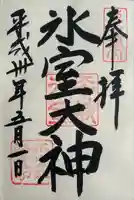 奉拝
氷室大神
平成卅一年五月一日